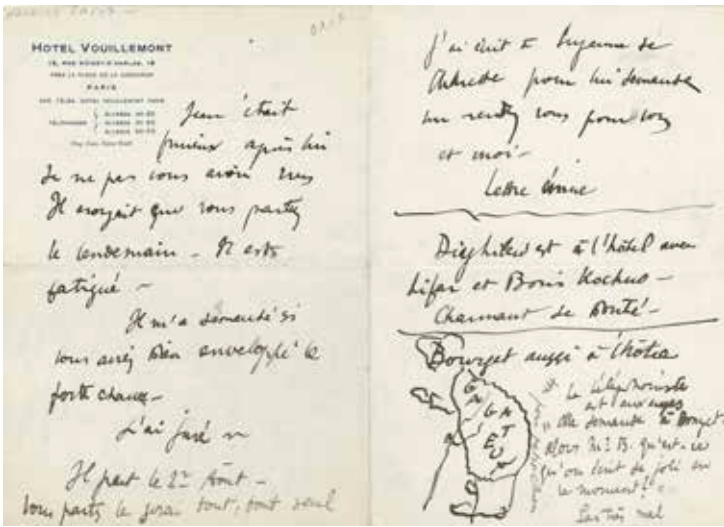 HOTEL VOUILLEMONT
15, RUE BOISSY D'ANGLAS, 15
PRÈS LA PLACE DE LA CONCORDE
PARIS
Jean était
furieux après lui
de ne pas vous avoir vus
Il croyait que vous partiez
le lendemain – Il est
fatigué –
Il m'a demandé si
vous aviez bien enveloppé le
porte chance –
J'ai juré
Il part le 2 Août –
vous partez le tout, tout seul
J'ai écrit à Suzanne de
pour lui demander
un rendez vous pour vous
et moi –
Lettre émue
Diaghilew est à l'hôtel avec
Lifar et Boris Kochno –
Charmant de Bonté –
Bourget aussi à l'hôtel
GAGA
GATEUX
La téléphoniste
est aux anges
elle demande à Bourget
Alors Mr B. qu'est-ce
qu'on écrit de joli en
ce moment? "
mal